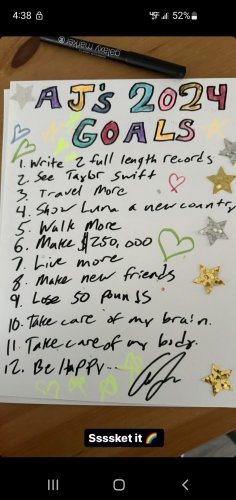 4:38
52%
galaxy marker
AJ's 2024
GOALS
1. Write 2 full length records
2. See Taylor Swift
3. Travel More
4. Show Luna a new country
5. Walk More
6. Make $250,000
7. Live more
8. Make new friends
9. Lose 50 Pounds
10. Take care of my brain.
11. Take care of my body.
12. Be HAPPY...
Ssssket it 🌈